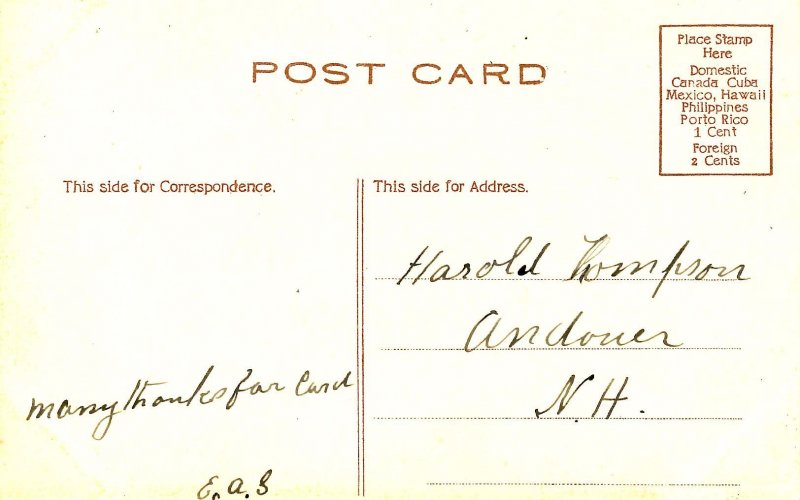 POST CARD
Place Stamp
Here
Domestic
Canada Cuba
Mexico, Hawaii
Philippines
Porto Rico
1 Cent
Foreign
2 Cents
This side for Correspondence.
Many thanks for Card
E. a. S
This side for Address.
Harold Thompson
Andover
N. H.